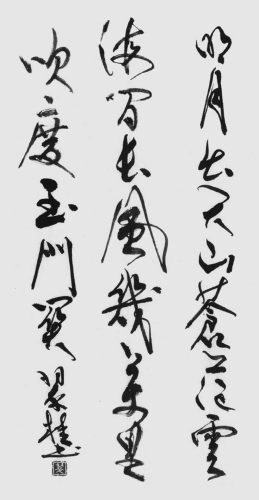 明月出天山蒼茫雲
海間長風幾萬里
吹度玉門關